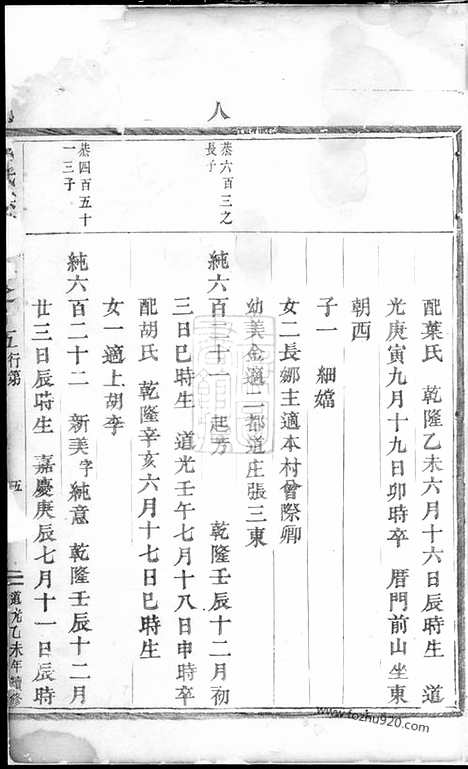 八
配葉氏 乾隆乙未六月十六日辰時生 道
光庚寅九月十九日卯時卒 厝門前山坐東
朝西
子一 細嬉
女二長娜主適本村曾際卿
幼美金適二都道庄張三東
恭六百三之
長子
純六百二十一 起芳 乾隆壬辰十二月初
三日巳時生 道光壬午七月十八日申時卒
配胡氏 乾隆辛亥六月十七日巳時生
女一適上胡李
恭四百五十
一三子
純六百二十二 新美字純意 乾隆壬辰十二月
廿三日辰時生 嘉慶庚辰七月十一日辰時
行第
五
道光乙未年續修
www.tozhu920.com